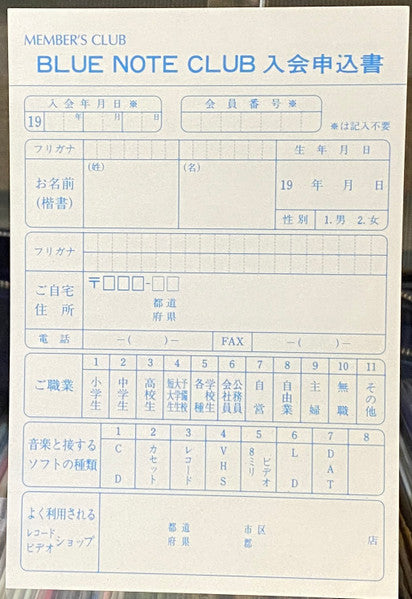 MEMBER'S CLUB
BLUE NOTE CLUB 入会申込書
入会年月日※ 会員番号※
19 年 月 日 ※は記入不要
フリガナ 生年月日
お名前 (姓) (名) 19 年 月 日
(楷書) 性別 1.男 2.女
フリガナ
ご自宅 〒 -
住所 都道
府県
電話 —( )— FAX —( )—
1 2 3 4 5 6 7 8 9 10 11
ご職業 小学生 中学生 高校生 短大予大学備生生校 各学校種生 会公社務員員 自営 自由業 主婦 無職 その他
音楽と接する 1 2 3 4 5 6 7 8
ソフトの種類 CD カセット レコード VHS 8ミリビデオ LD DAT
よく利用される
レコード
ビデオ ショップ 都道 市区 店
府県 郡